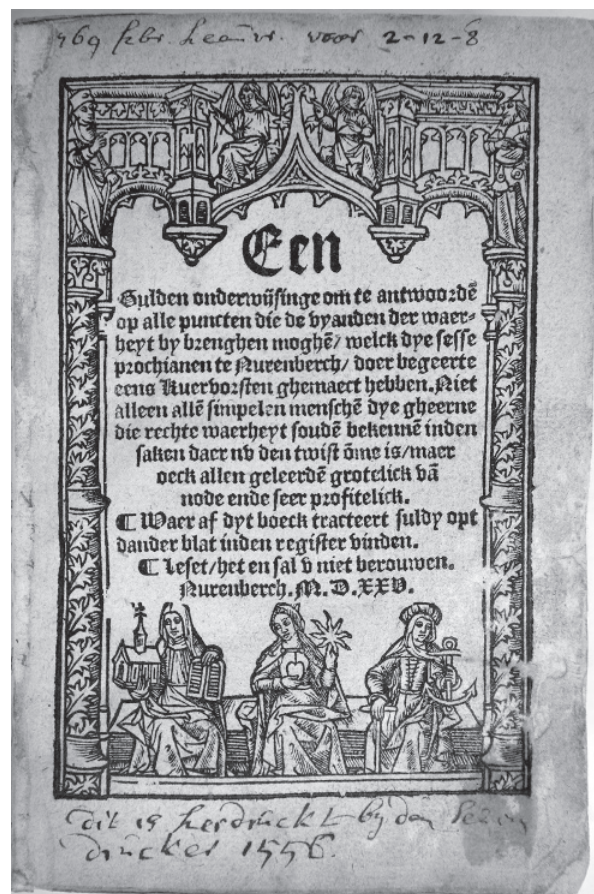 569 febr. Leauw. voor 2-12-8
Een
Gulden onderwijsinge om te antwoordē
op alle puncten die de vyanden der waer-
heyt by brenghen moghē/ welck dye sesse
prochianen te Nurenberch/ doer begeerte
eens Kuervorsten ghemaect hebben. Niet
alleen allē simpelen menschē dye gheerne
die rechte waerheyt soudē bekennē inden
saken daer nv den twist ōme is/maer
oeck allen geleerdē grotelick vā
node ende seer profitelick.
¶ Waer af dyt boeck tracteert suldy opt
dander blat inden register vinden.
¶ Leset/het en sal v niet berouwen.
Nurenberch. M. D. XXV.
dit is herdruckt by den
drucker 1556.